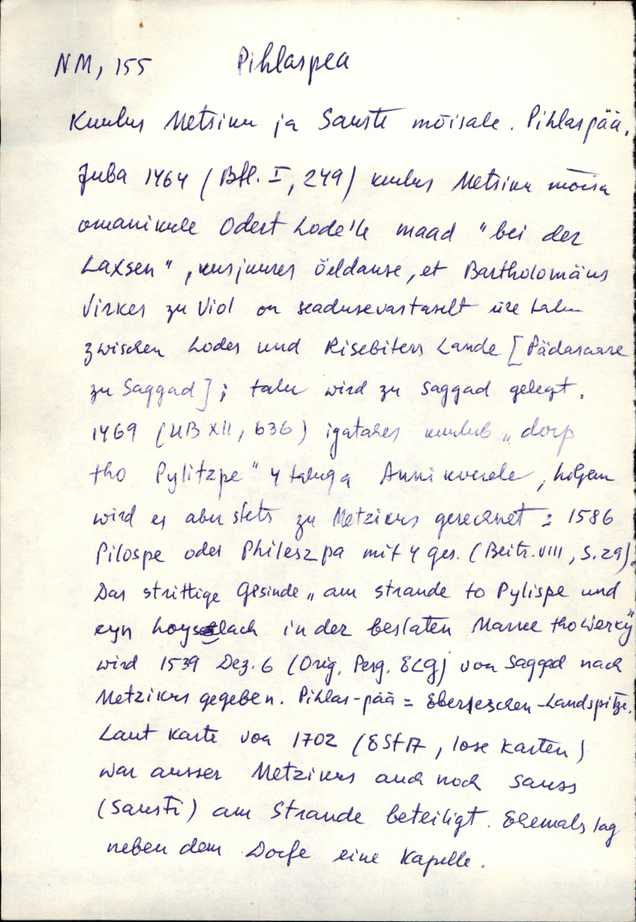 NM, 155 Pihlaspea
Kuulus Metsiku ja Sauste mõisale. Pihlaspää.
Juba 1464 (Bfl. I, 249) kuulus Metsiku mõisa
omanikule Odert Lode'le maad "bei der
Laxsen", kusjuures öeldakse, et Bartholomäus
Virkes zu Viol on seadusevastaselt üle talu
zwischen Lodes und Risebiters Lande [Pädasaare
zu Saggad]; talu wird zu Saggad gelegt.
1469 (UB XII, 636) igatahes kuulub "dorp
tho Pylitzpe" 4 taluga Annikverele, hiljem
wird es aber stets zu Metzikus gerechnet: 1586
Pilospe oder Phileszpa mit 4 ges. (Beitr. VIII, S. 29).
Das strittige Gesinde "am strande to Pylispe und
eyn hoyslach in der beslaten Marne tho Werky"
wird 1539 Dez. 6 (Orig. Perg. ELG) von Saggad nach
Metzikus gegeben. Pihlas-pää = Ebereschen-Landspitze.
Laut Karte von 1702 (EStA, lose Karten)
war ausser Metzikus auch noch Sauss
(Sausti) am Strande beteiligt. Ehemals lag
neben dem Dorfe eine Kapelle.